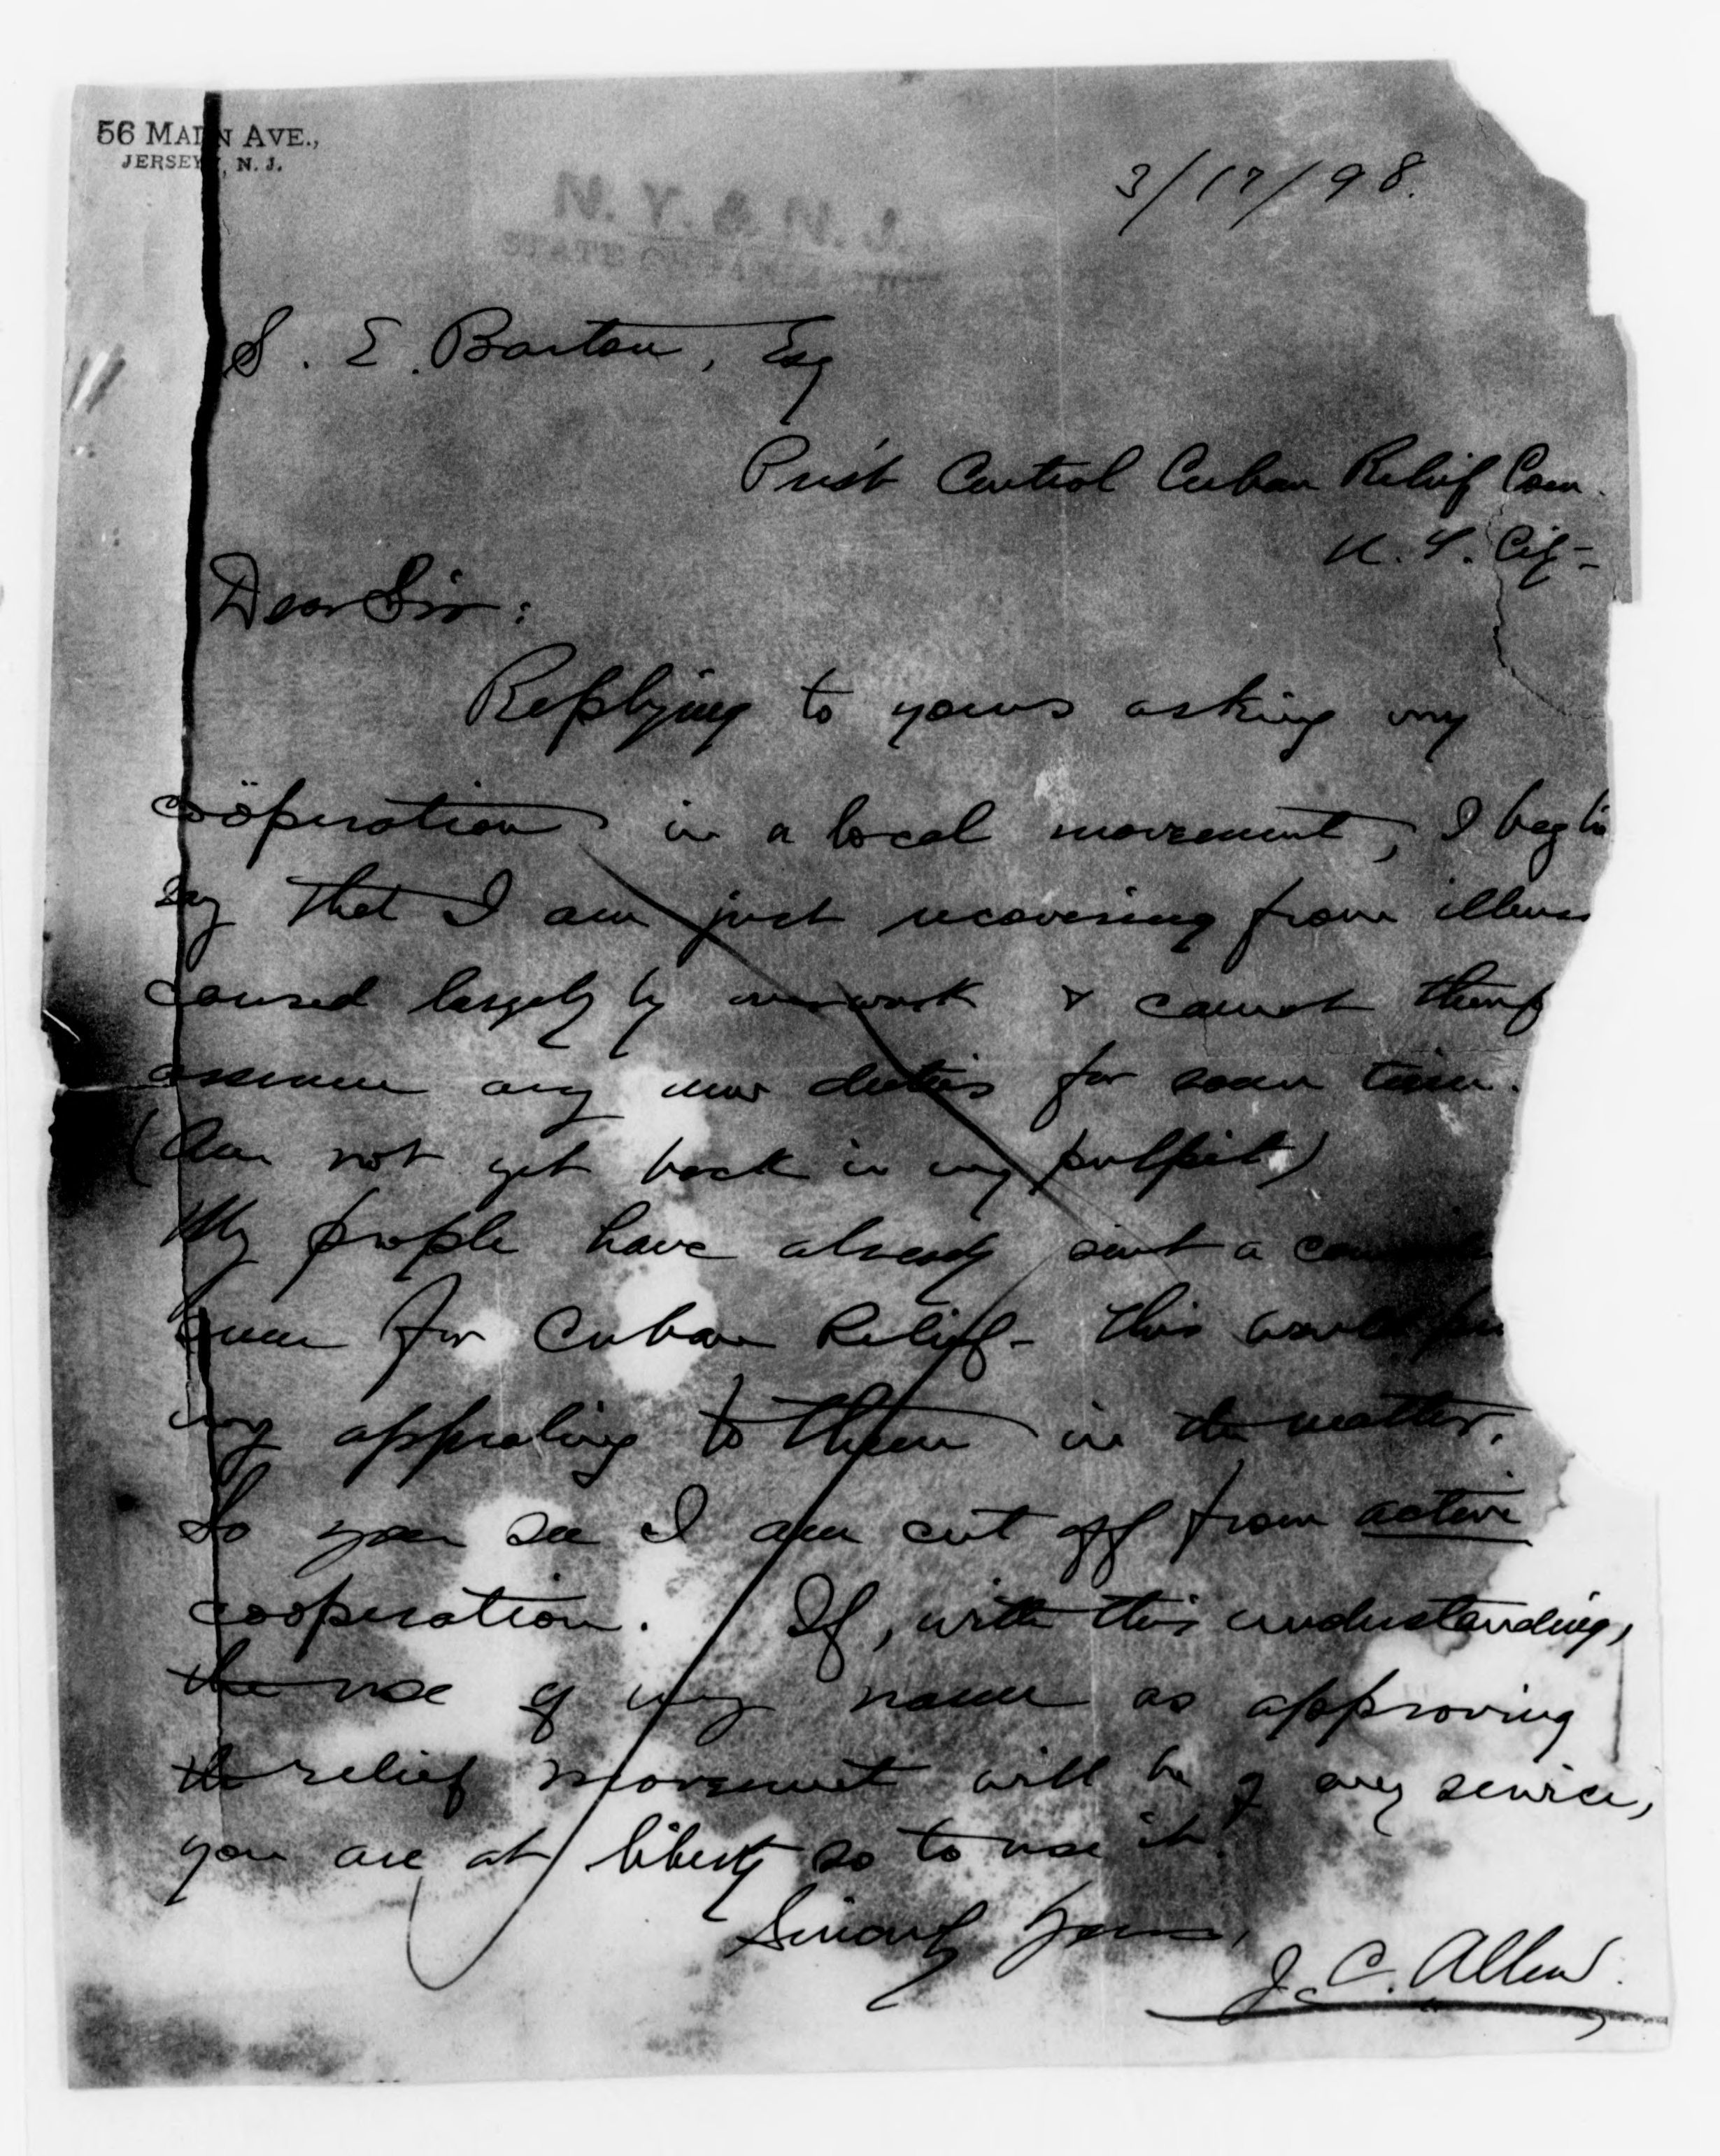 56 MAIN AVE.,
JERSEY, N. J.
3/17/98.
N. Y. & N. J.
STATE
S. E. Barton, Esq
Pres't Central Cuban Relief Com.
N. Y. City-
Dear Sir:
Replying to yours asking my
coöperation in a local movement, I beg to
say that I am just recovering from illness
caused largely by overwork & cannot theref
assume any new duties for some time.
(Am not yet back in my pulpit)
My people have already sent a
sum for Cuban Relief- This would
my appealing to them in the matter.
So you see I am cut off from active
cooperation. If, with this understanding,
the use of my name as approving
the relief movement will be of any service,
you are at liberty so to use it.
Sincerely Yours,
J. C. Allen.